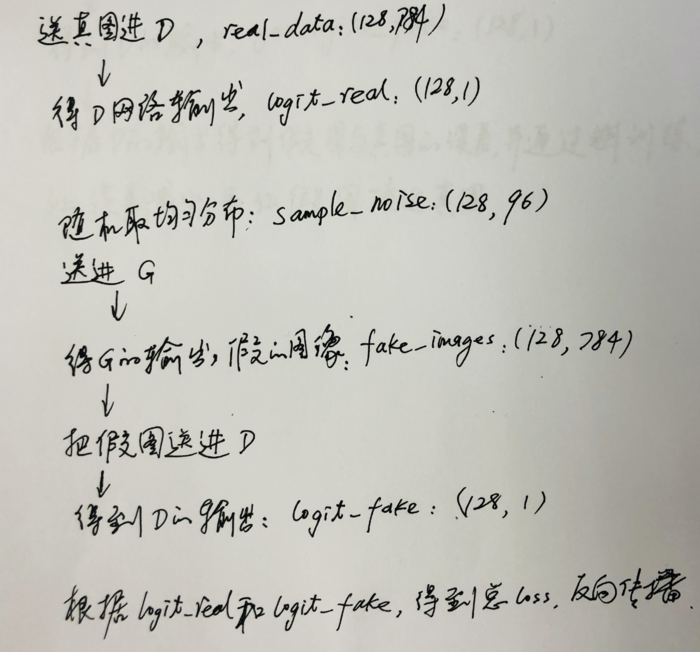 送真图进D，real_data：(128,784)
↓
得D网络输出，logit_real：(128,1)
随机取均匀分布：sample_noise：(128, 96)
送进 G
↓
得G的输出，假的图像：fake_images：(128, 784)
↓
把假图送进D
↓
得到D的输出：logit_fake：(128, 1)
根据logit_real和logit_fake，得到总loss，反向传播.